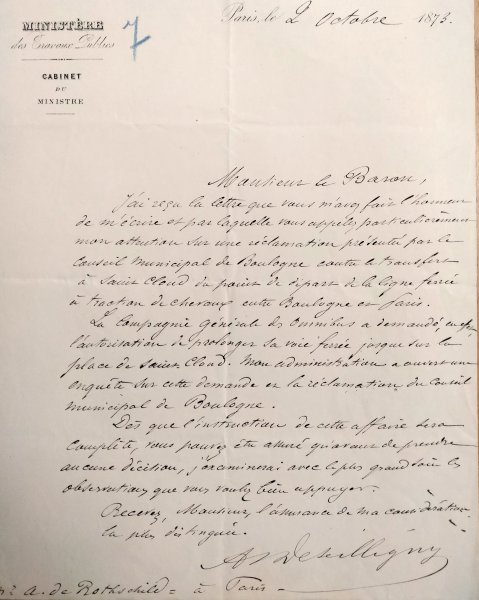 MINISTÈRE
des Travaux Publics
CABINET
DU
MINISTRE
7
Paris, le 2 Octobre 1873.
Monsieur le Baron,
J'ai reçu la lettre que vous m'avez fait l'honneur
de m'écrire et par laquelle vous appelez particulièrement
mon attention sur une réclamation présentée par le
Conseil municipal de Boulogne contre le transfert
à Saint Cloud du point de départ de la ligne ferrée
à traction de chevaux entre Boulogne et Paris.
La Compagnie générale des Omnibus a demandé, en effet,
l'autorisation de prolonger sa voie ferrée jusque sur la
place de Saint Cloud. Mon administration a ouvert une
enquête sur cette demande et la réclamation du Conseil
municipal de Boulogne.
Dès que l'instruction de cette affaire sera
complète, vous pouvez être assuré qu'avant de prendre
aucune décision, j'examinerai avec le plus grand soin les
observations que vous voulez bien appuyer.
Recevez, Monsieur, l'assurance de ma considération
la plus distinguée.
A Deseilligny
A. de Rothschild = à Paris -